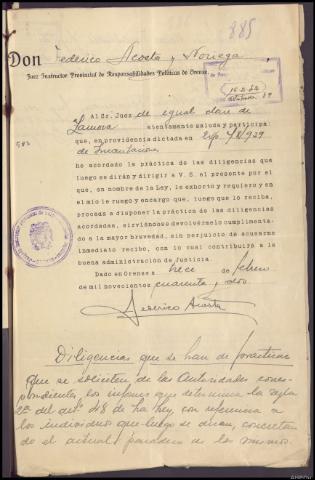 885
Don Federico Acosta y Noriega
Juez Instructor Provincial de Responsabilidades Políticas de Orense.
Al Sr. Juez de igual clase de
Zamora atentamente saluda y participa
que, en providencia dictada en Exp. 929
de Incautacion
ha acordado la práctica de las diligencias que
luego se dirán y dirigir a V. S. el presente por el
que, en nombre de la Ley, le exhorto y requiero y en
el mío le ruego y encargo que, luego que lo reciba,
proceda a disponer la práctica de las diligencias
acordadas, sirviéndose devolvérmelo cumplimenta-
do a la mayor brevedad, sin perjuicio de acusarme
inmediato recibo, con lo cual contribuirá a la
buena administración de Justicia.
Dado en Orense a trece de febrero
de mil novecientos cuarenta y dos
Federico Acosta
Diligencias que se han de practicar
Que se soliciten de las Autoridades corres-
pondientes, los informes que determina la regla
2ª del artº 48 de la ley, con referencia a
los individuos que luego se dirán, concretan-
do el actual paradero de los mismos.